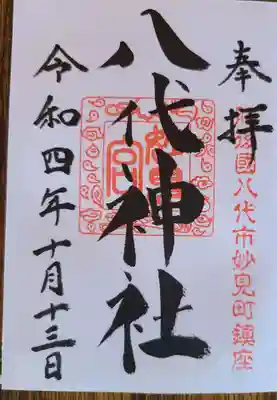 奉拝
國八代市妙見町鎮座
八代神社
宮
令和四年十月十三日